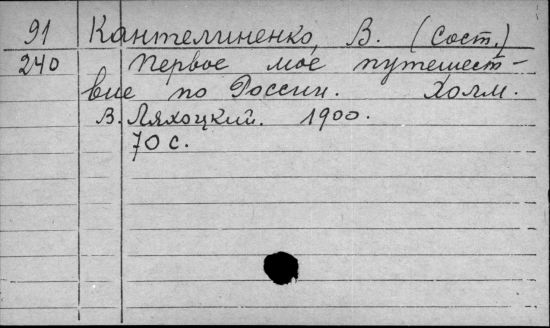 91 Кантелиненко, В. (Сост.)
240 Первое мое путешест-
вие по России. Холм.
В. Ляхоцкий. 1900.
70 с.